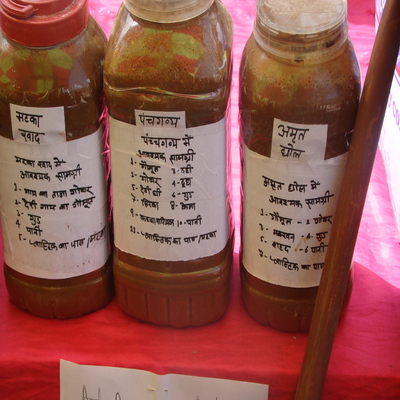 मटका
खाद
मटका खाद में
आवश्यक सामग्री
1- गाय का ताजा गोबर
2- देशी गाय का गौमूत्र
3- गुड़
4- पानी
5- प्लास्टिक का पात्र / मटका
पंचगव्य
पंचगव्य में
आवश्यक सामग्री
1- गौमूत्र
2- गोबर
3- दही
4- दूध
5- देशी घी
6- गुड़
7- सिरका
8- केला
10- पानी
11- प्लास्टिक का पात्र/मटका
अमृत
घोल
अमृत घोल में
आवश्यक सामग्री
1- गौमूत्र - 2 गोबर
3- मक्खन - 4 गुड़
5- शहद - 6 पानी
7- प्लास्टिक का पात्र